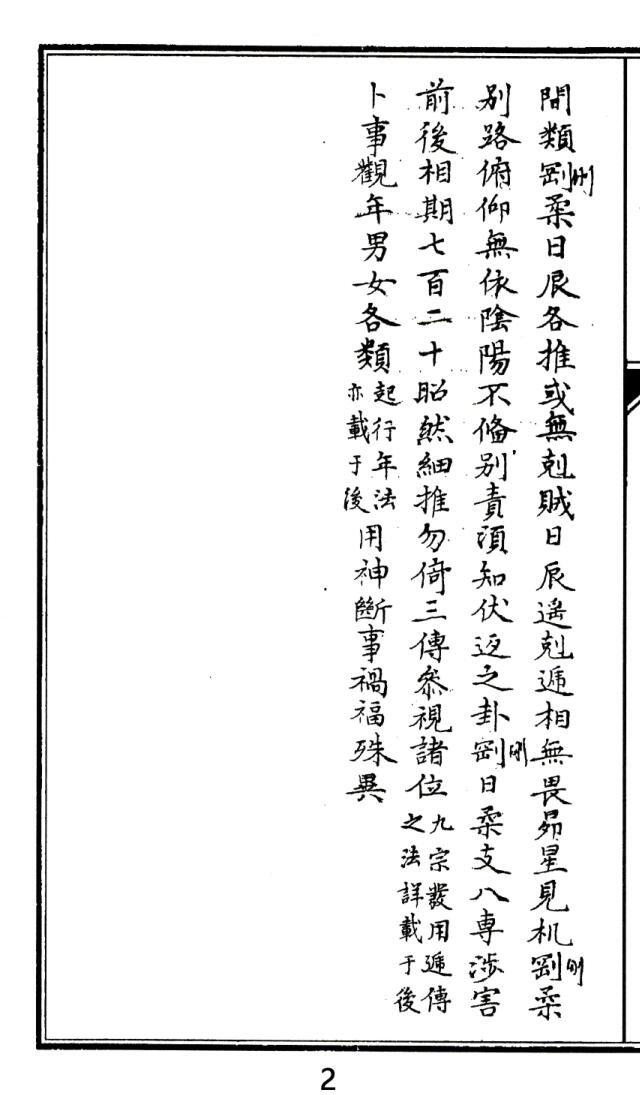 間類剛刚柔日辰各推或無剋賊日辰遥剋遞相無畏昴星見机剛刚柔
别路俯仰無依陰陽不俻别責湏知伏返之卦剛刚日柔支八專涉害
前後相期七百二十昭然細推勿倚三傳叅視諸位九宗發用遞傳之法詳載于後
卜事觀年男女各類起行年法亦載于後用神斷事禍福殊異
2